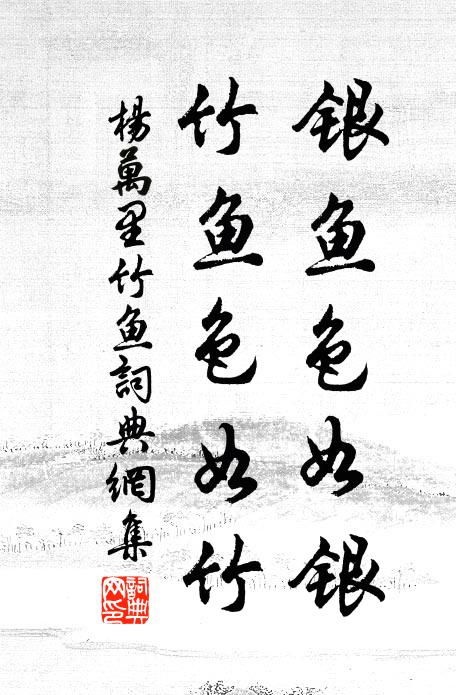 银鱼色如银
竹鱼色如竹
楊萬里竹鱼詞典網集
詞典
网印